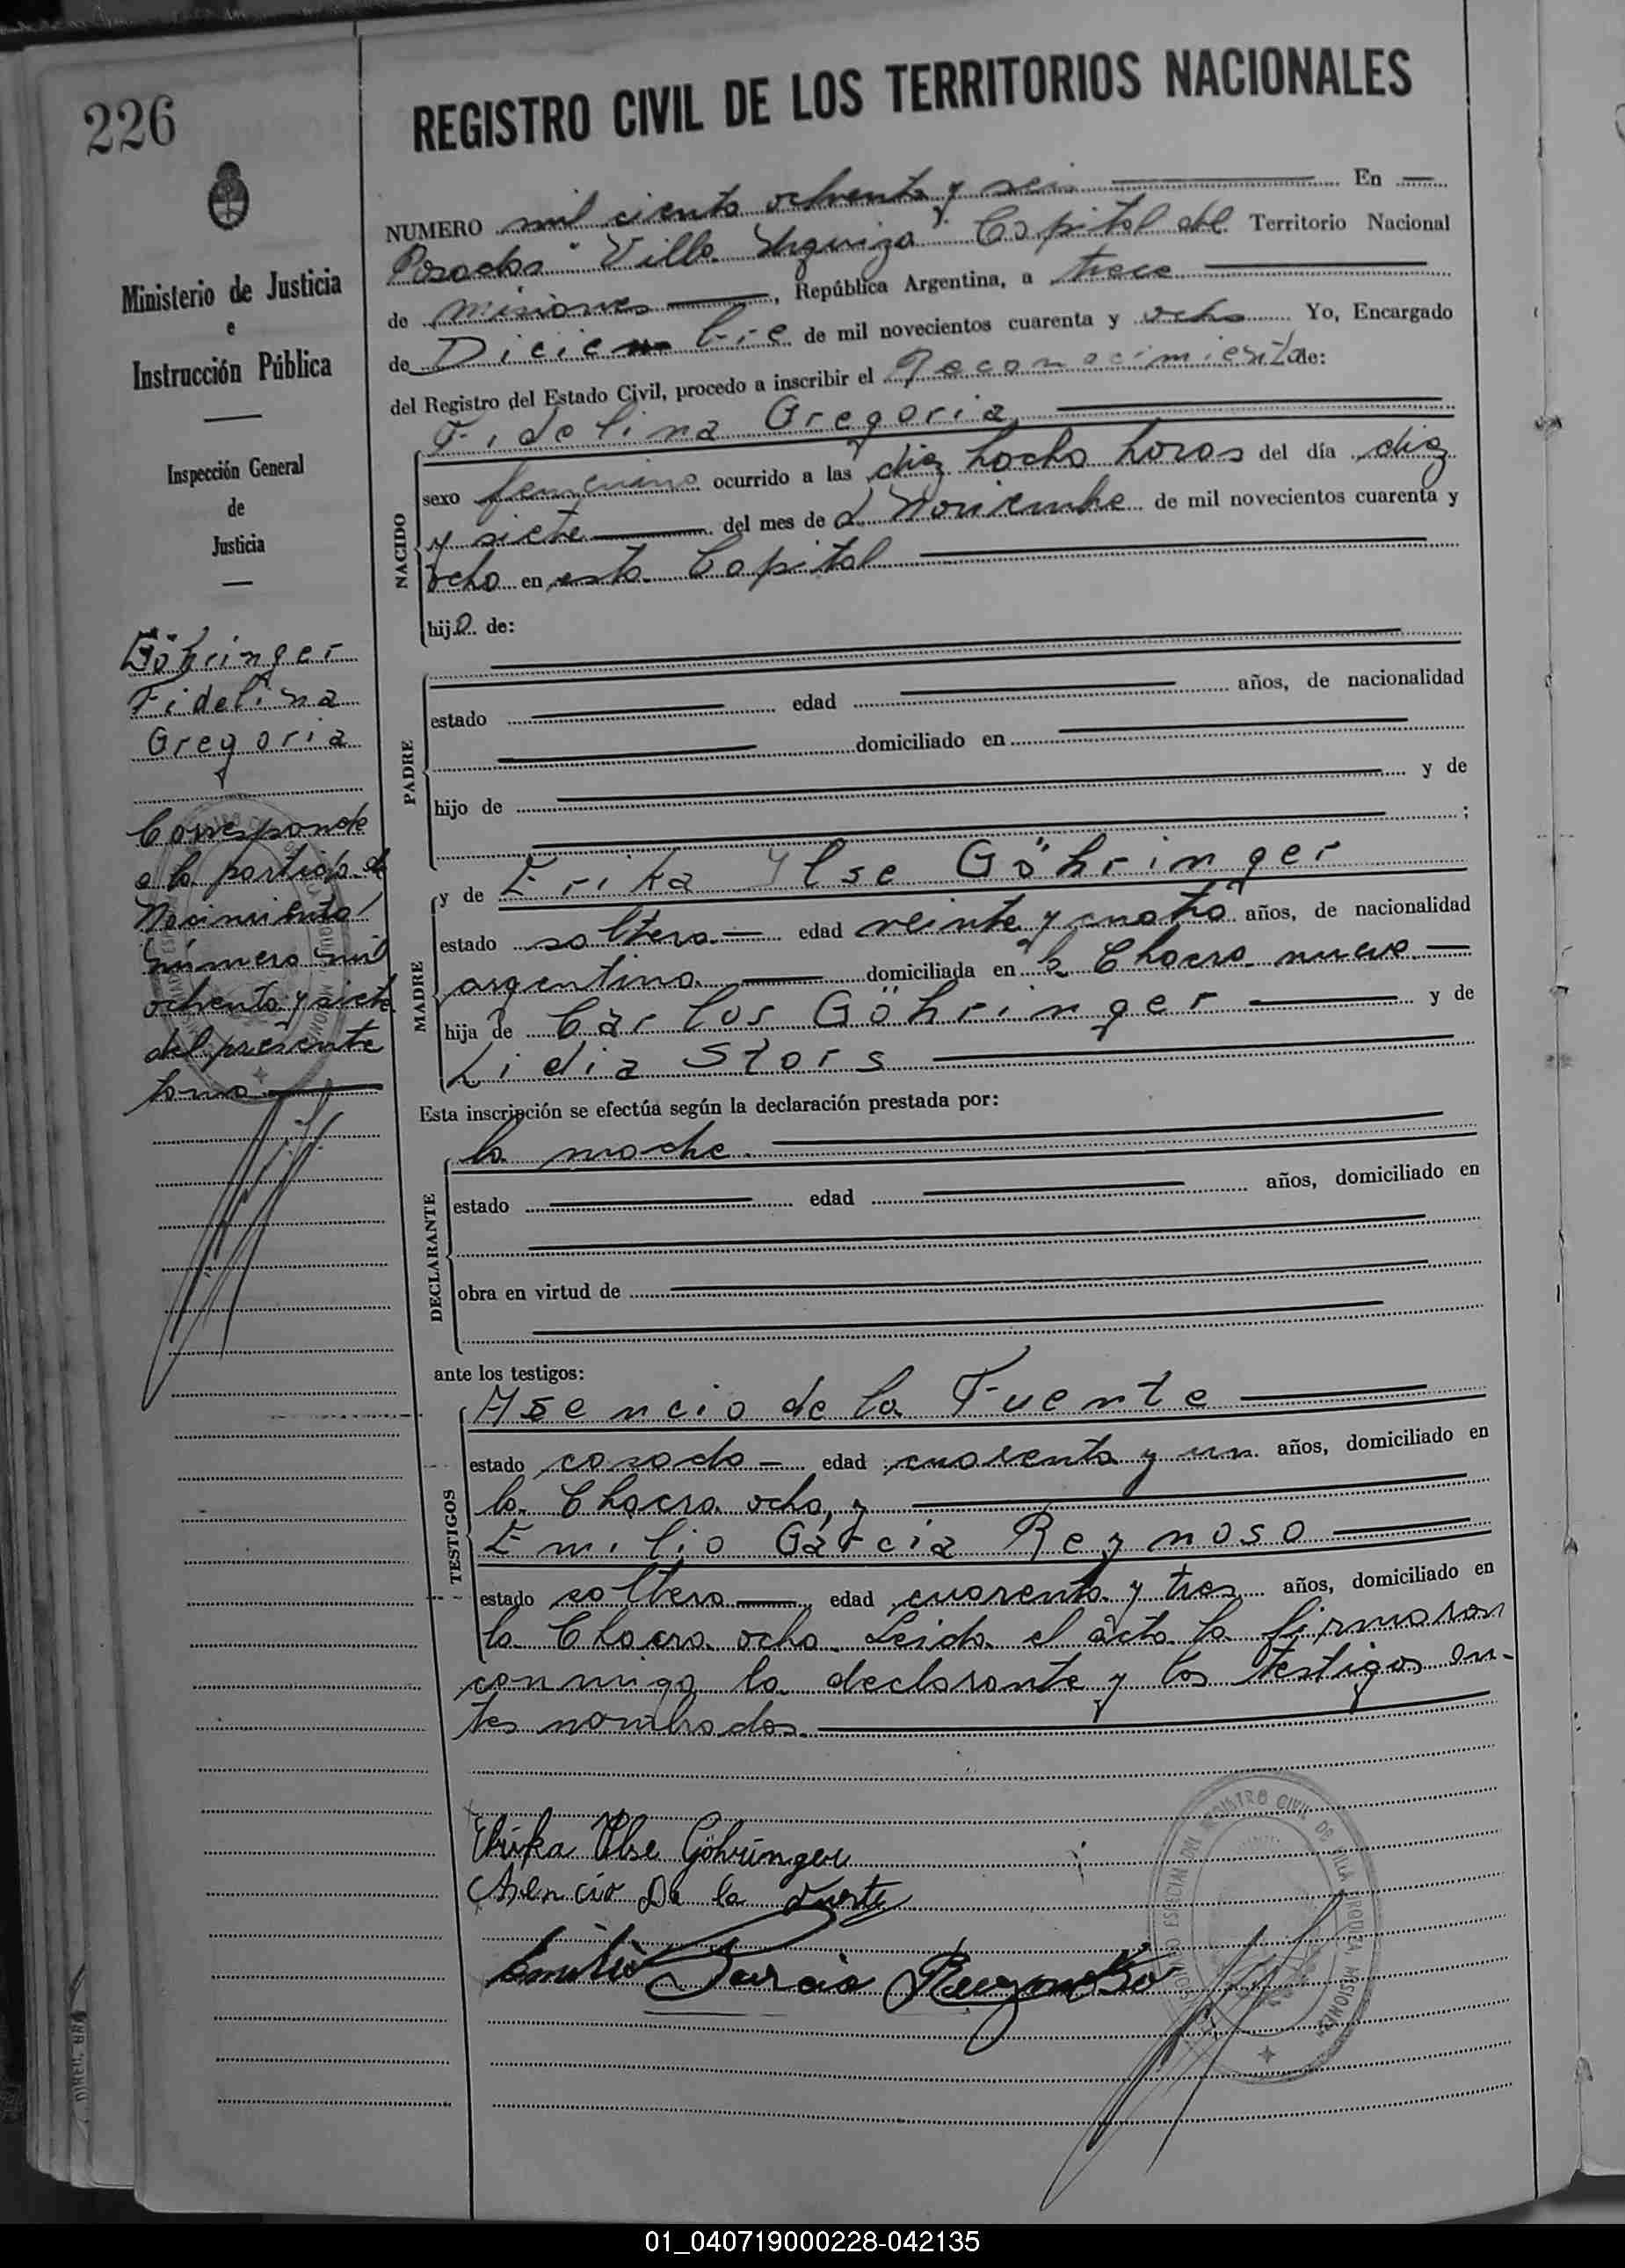 226
REGISTRO CIVIL DE LOS TERRITORIOS NACIONALES
NUMERO mil ciento ochenta y seis En
Posadas "Villa Urquiza" Capital del Territorio Nacional
de Misiones, República Argentina, a trece
de Diciembre de mil novecientos cuarenta y ocho Yo, Encargado
del Registro del Estado Civil, procedo a inscribir el Reconocimiento de:
Fidelina Gregoria
NACIDO
sexo femenino ocurrido a las diez hocho horas del día diez
y siete del mes de Noviembre de mil novecientos cuarenta y
ocho en esta Capital
hija de:
PADRE
estado edad años, de nacionalidad
domiciliado en
hijo de y de
;
MADRE
y de Erika Ylse Göhringer
estado soltera edad veinte y cuatro años, de nacionalidad
argentina domiciliada en la Chacra nueve
hija de Carlos Göhringer y de
Lidia Stors
Esta inscripción se efectúa según la declaración prestada por:
DECLARANTE
la madre
estado edad años, domiciliado en
obra en virtud de
ante los testigos:
TESTIGOS
Asencio de la Fuente
estado casado edad cuarenta y un años, domiciliado en
la Chacra ocho, y
Emilio Garcia Reynoso
estado soltero edad cuarenta y tres años, domiciliado en
la Chacra ocho. Leida el acta la firmaron
conmigo la declarante y los testigos an-
tes nombrados.
Erika Ylse Göhringer
Asencio De la Fuente
Emilio Garcia Reynoso
REGISTRO CIVIL DE VILLA URQUIZA MISIONES
Ministerio de Justicia
e
Instrucción Pública
Inspección General
de
Justicia
Göhringer
Fidelina
Gregoria
Corresponde
a la partida de
Nacimiento
número mil
ochenta y siete
del presente
tomo
01_040719000228-042135